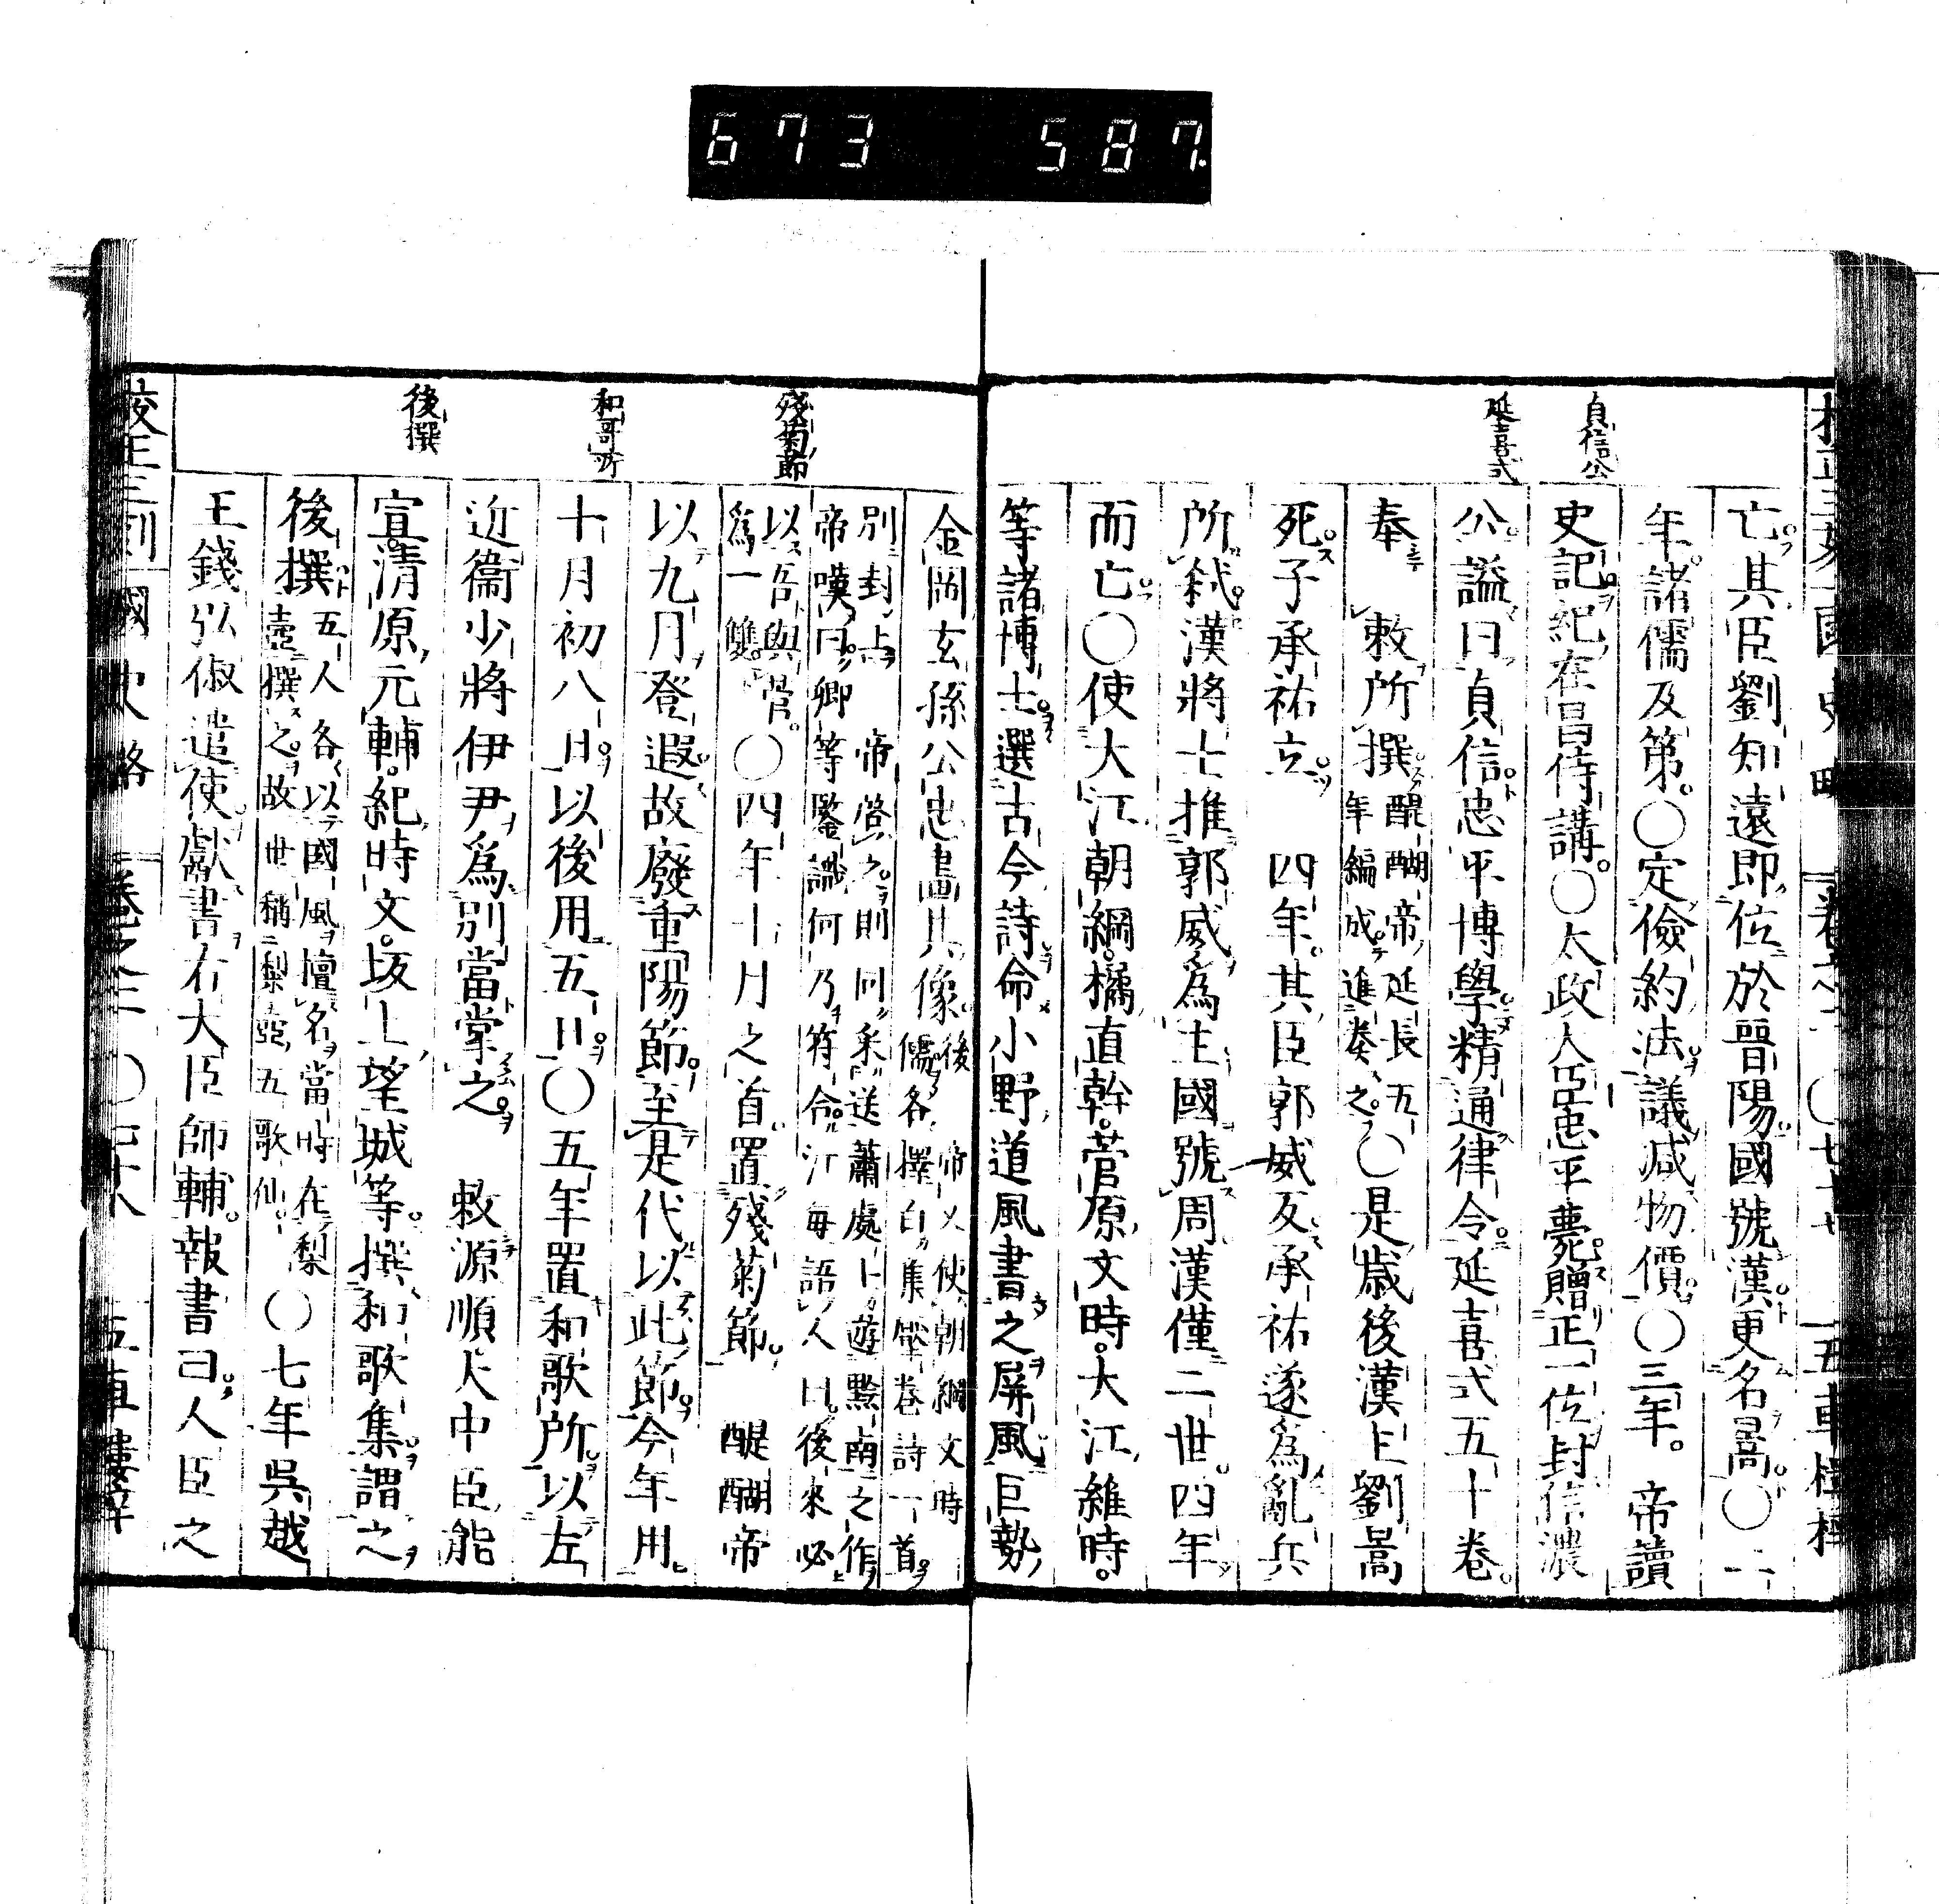 673 587
貞信公
延喜式
亡其臣劉知遠即位於晉陽國號漢更名暠〇二
年諸儒及第〇定儉約法議減物價〇三年 帝讀
史記紀在昌侍講〇太政大臣忠平薨贈正一位封信濃
公謚曰貞信忠平博學精通律令延喜式五十卷
奉 敕所撰醍醐帝延長五
年編成進奏之〇是歲後漢主劉暠
死子承祐立 四年其臣郭威反承祐遂爲亂兵
所弑漢將士推郭威爲主國號周漢僅二世四年
而亡〇使大江朝綱橘直幹菅原文時大江維時
等諸博士選古今詩命小野道風書之屏風巨勢
殘菊節
和哥所
後撰
金岡玄孫公忠畫其像後 帝又使朝綱文時
儒各擇白集盡卷詩一首
別封上 帝啓之則同采送蕭處士遊黔南之作
帝嘆曰卿等鑒識何乃符合 每語人曰後來必
以吾與菅
爲一雙〇四年十月之首置殘菊節 醍醐帝
以九月登遐故廢重陽節至是代以此節今年用
十月初八日以後用五日〇五年置和歌所以左
近衞少將伊尹爲別當掌之 敕源順大中臣能
宣清原元輔紀時文坂上望城等撰和歌集謂之
後撰五人各以國風擅名當時在梨
壺撰之故世稱梨壺五歌仙〇七年吳越
王錢弘俶遣使獻書右大臣師輔報書曰人臣之
校正三刻國史略 卷之三 〇 五車樓梓